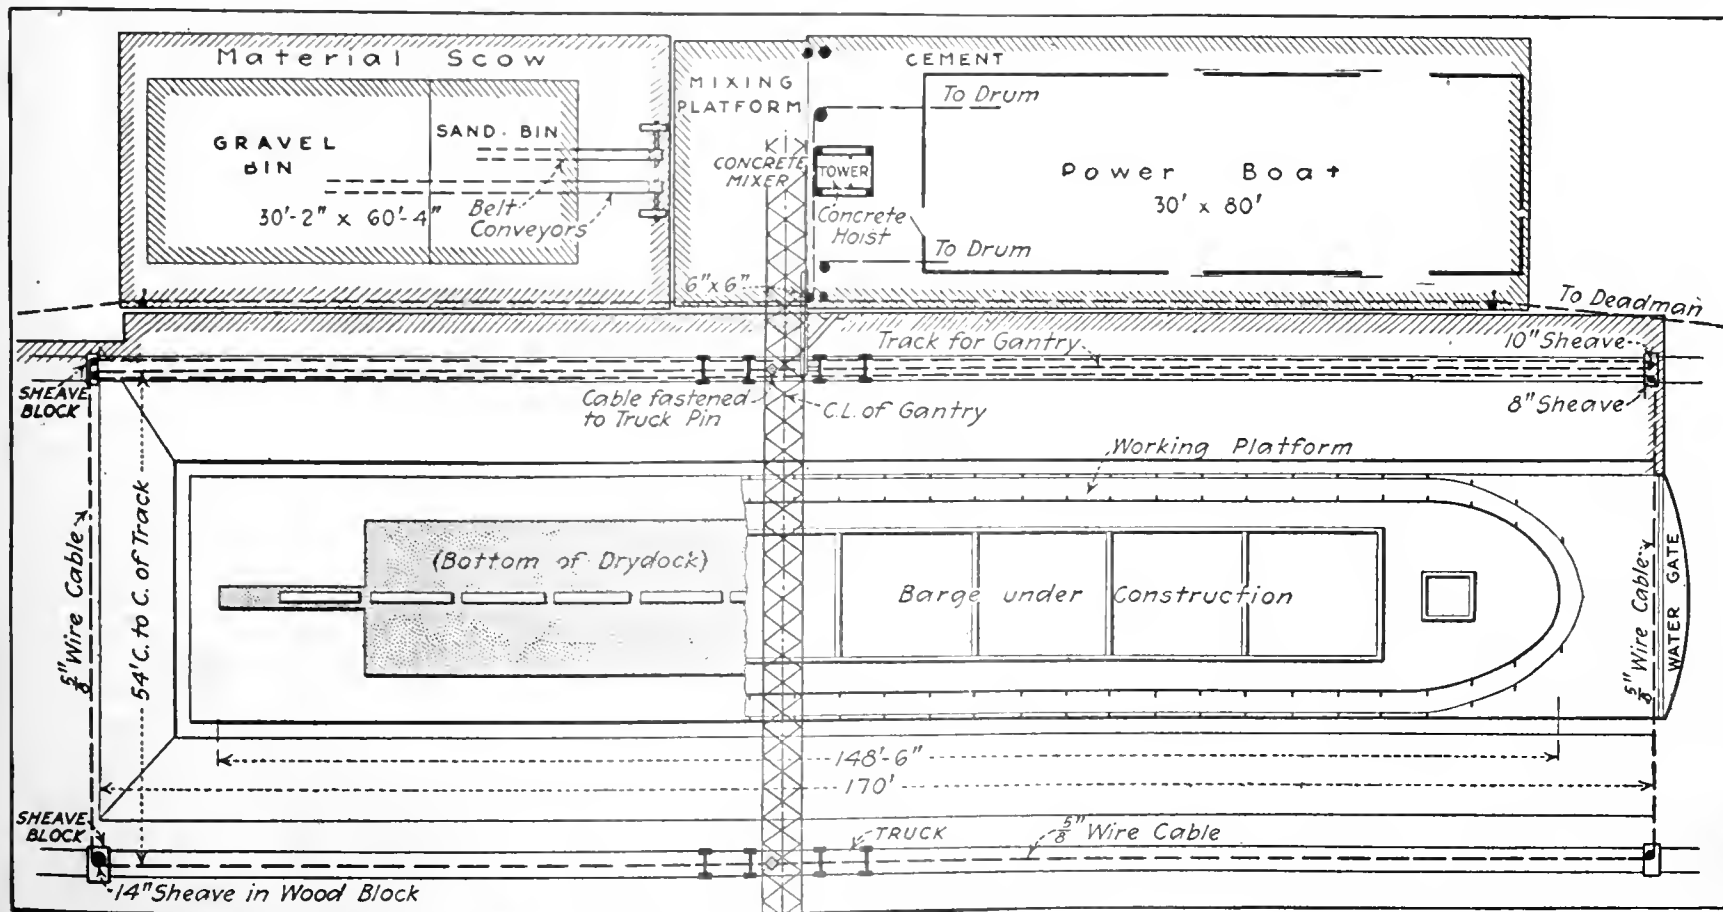 Material Scow
GRAVEL
BIN
SAND. BIN
30'-2" x 60'-4"
Belt
Conveyors
MIXING
PLATFORM
CONCRETE
MIXER
6"x6"
CEMENT
To Drum
TOWER
Concrete
Hoist
To Drum
Power Boat
30' x 80'
To Deadman
SHEAVE
BLOCK
Track for Gantry
10" Sheave
8" Sheave
Cable fastened
to Truck Pin
C.L. of Gantry
Working Platform
5/8" Wire Cable
54' C. to C. of Track
(Bottom of Drydock)
Barge under Construction
5/8" Wire Cable
WATER GATE
148'-6"
170'
SHEAVE
BLOCK
TRUCK
5/8" Wire Cable
14" Sheave in Wood Block